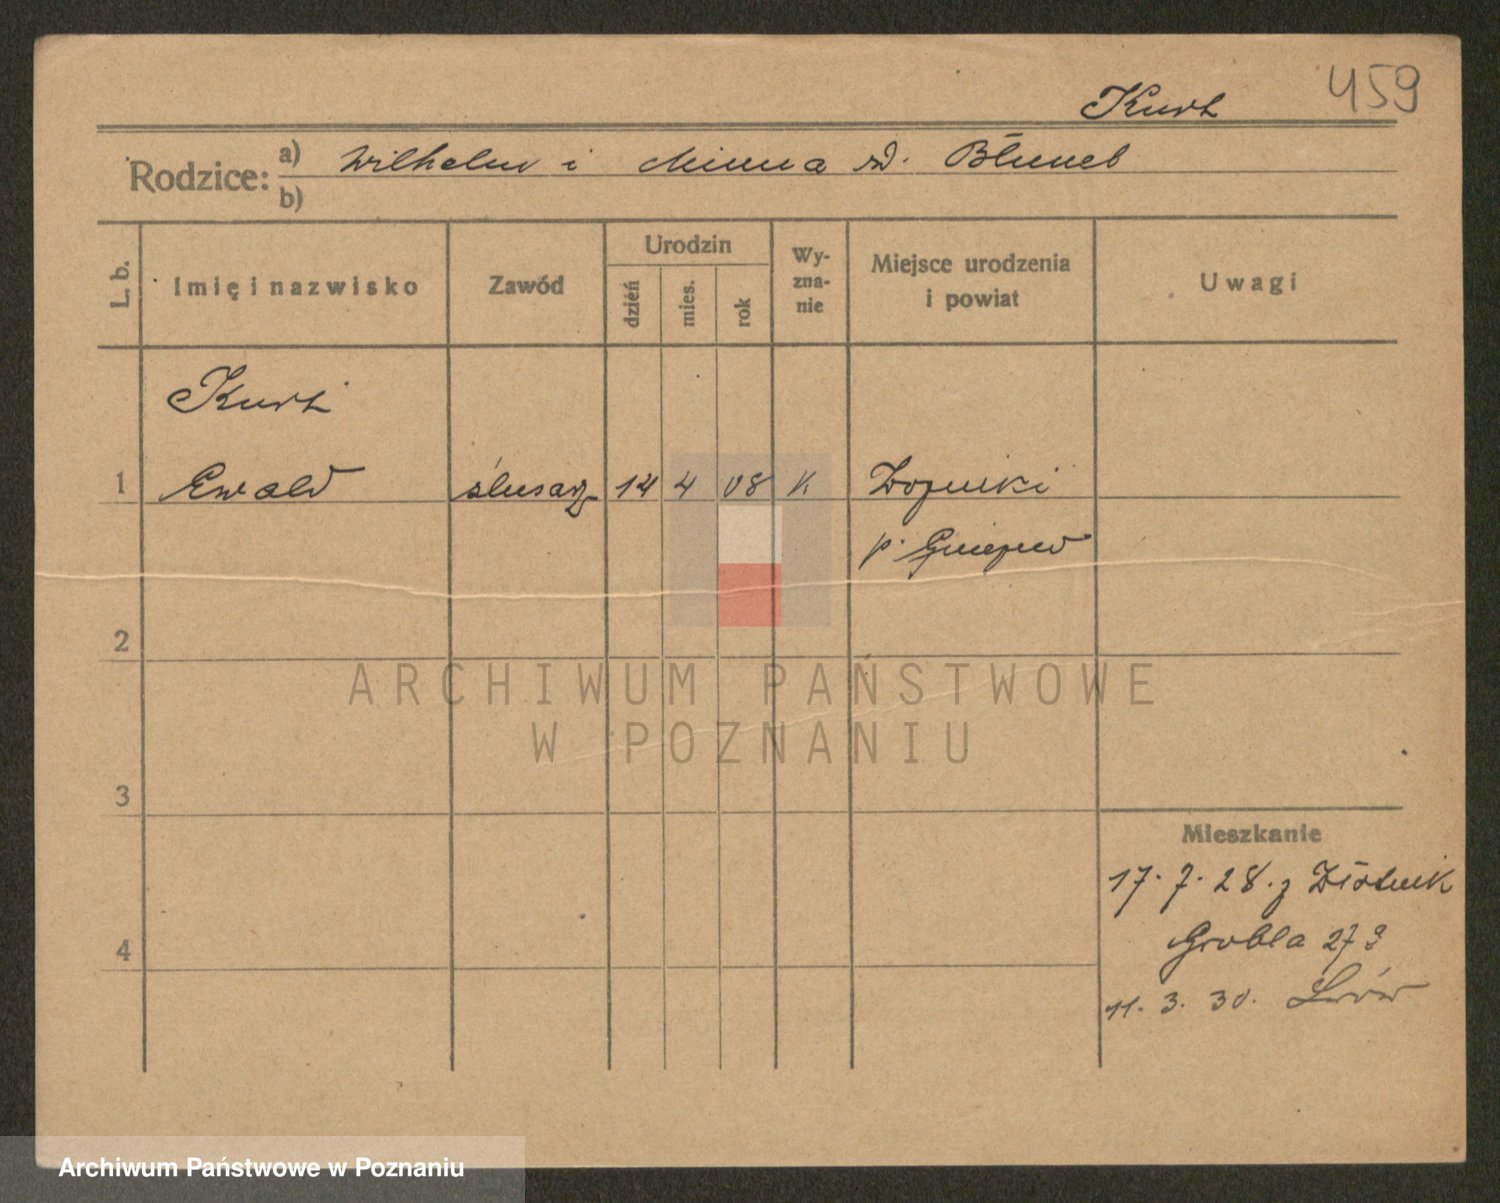 459
Kurt
Rodzice: a) Wilhelm i Minna
b)
L. b.
Imię i nazwisko
Zawód
Urodzin
dzień
mies.
rok
Wy-
zna-
nie
Miejsce urodzenia
i powiat
Uwagi
Kurt
1 Ewald ślusarz 14 4 08 K
p.
2
3
4
Mieszkanie
17. 7. 28. z Złotnik
Grobla 27
11. 3. 30. Lwów
ARCHIWUM PAŃSTWOWE
W POZNANIU
Archiwum Państwowe w Poznaniu